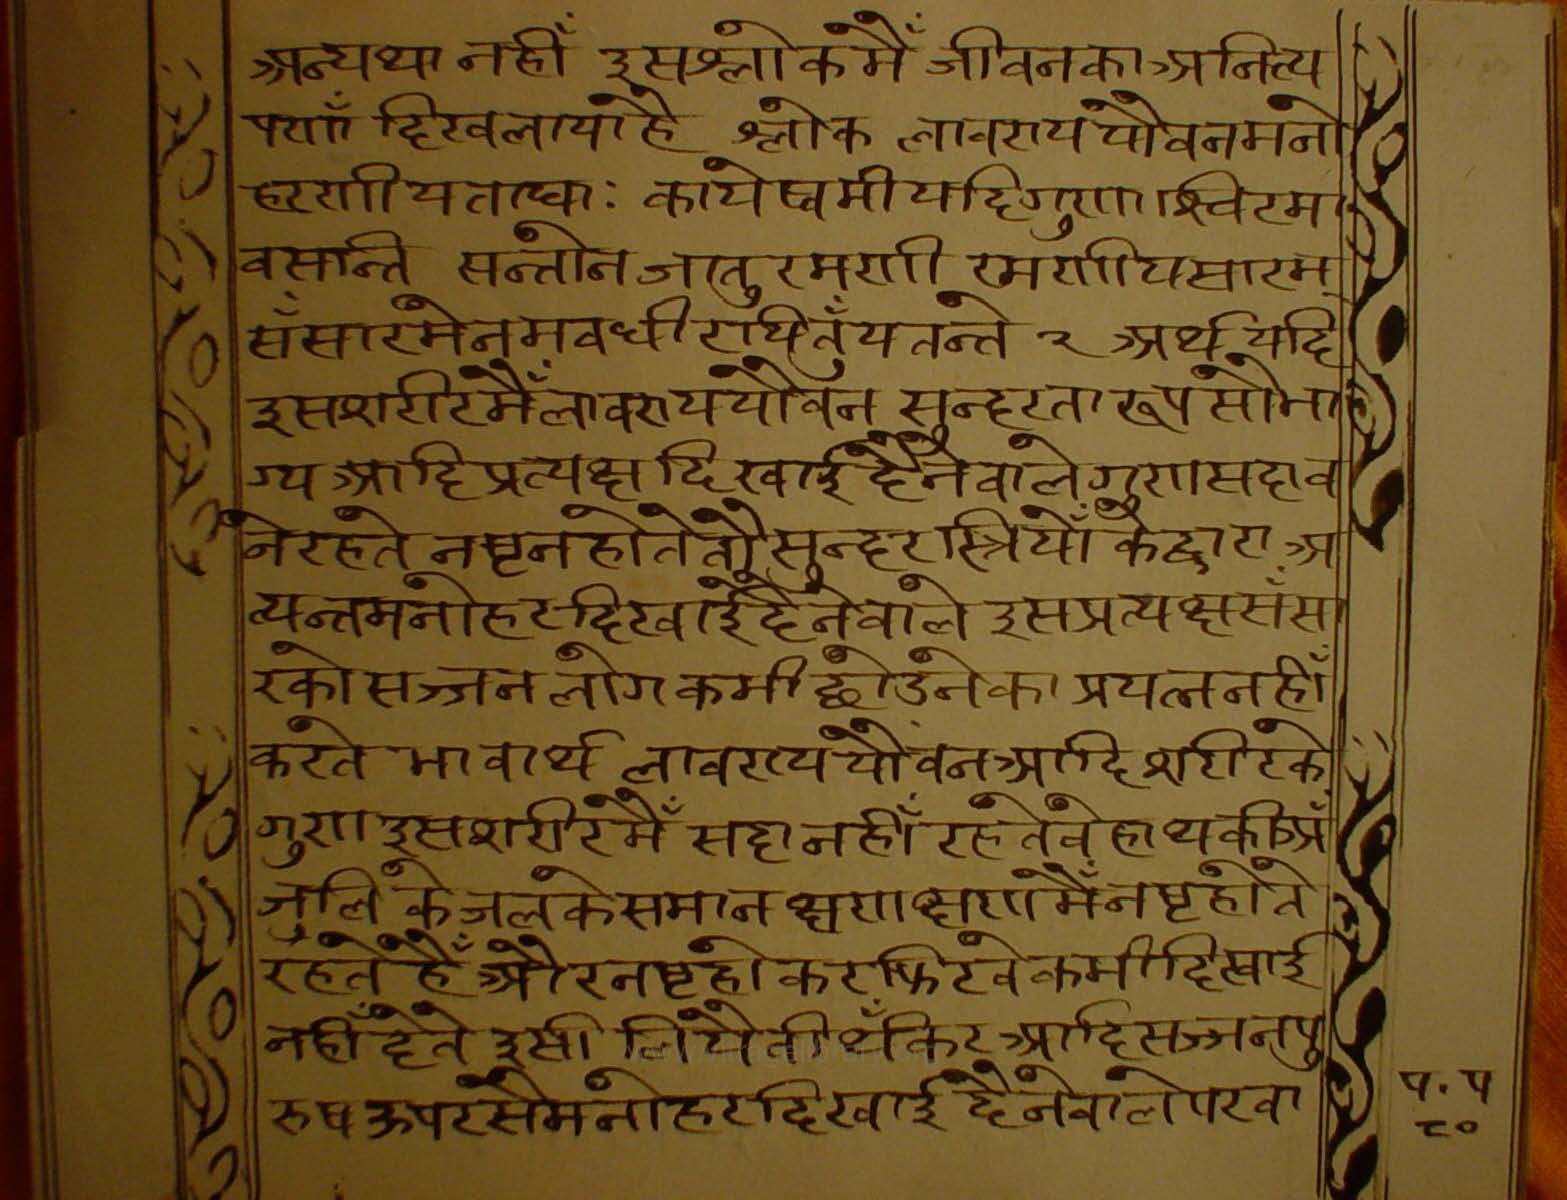 अन्यथा नहीँ इसश्लोकमेँ जीवनका अनित्य
पणाँ दिखलायाहै श्लोक लावरायर्यौवनमनो
हरणीयताद्याः कायेष्वमी यदिगुणाश्चिरमा
वसन्ति सन्तोन जातु रमणी रमणीयसारम्
सँसारमेनमवधीरायितुँयतन्ते २ अर्थ यदि
इसशरीरमैँलावरायर्यौवन सुन्दरता रूपसौभा
ग्य आदि प्रत्यक्ष दिखाईदैनेवाले गुणसदाव
नेरहते नष्टनहोतेतौ सुन्दरस्त्रियोँ केद्वारा अ
त्यन्तमनोहरदिखाईदैनेवाले इसप्रत्यक्षसँसा
रको सज्जन लोग कभी छोडनेका प्रयत्ननहीँ
करते भावार्थ लावरायर्यौवनआदिशरीरके
गुण इसशरीरमैँ सदानहीँ रहतेवे हाथकीअँ
जुलि के जलकेसमान क्षणक्षणमैँनष्टहोते
रहतेहैँ औरनष्टहोकरफिरवेकभीदिखाई
नहीँदेते इसीलियेतीर्थँकर आदिसज्जनपु
रुषऊपरसेमनोहरदिखाई दैनेवालेपरवा
प॰प
८०